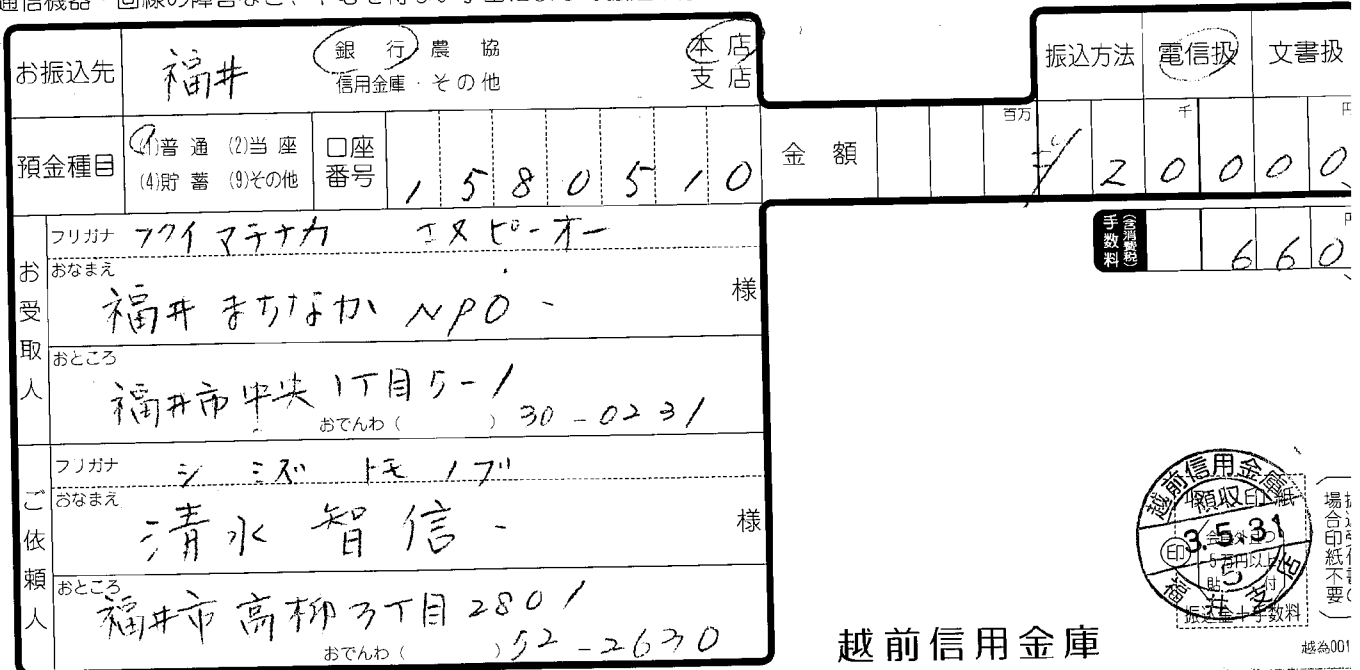 お振込先 福井 銀行 農協 本店
信用金庫・その他 支店
振込方法 電信扱 文書扱
預金種目 (1)普通 (2)当座
(4)貯蓄 (9)その他
口座番号 1580510
金額 百万 千 円
20000
手数料 (含消費税) 円
660
お受取人
フリガナ フクイマチナカ エヌピーオー
おなまえ
福井まちなかNPO 様
おところ
福井市中央1丁目5-1
おでんわ( )30-0231
ご依頼人
フリガナ シミズ トモノブ
おなまえ
清水智信 様
おところ
福井市高柳3丁目2801
おでんわ( )52-2630
越前信用金庫
領収印
3.5.31
5
福井支店
印
5万円以上
振込金+手数料
越前信用金庫
越為001